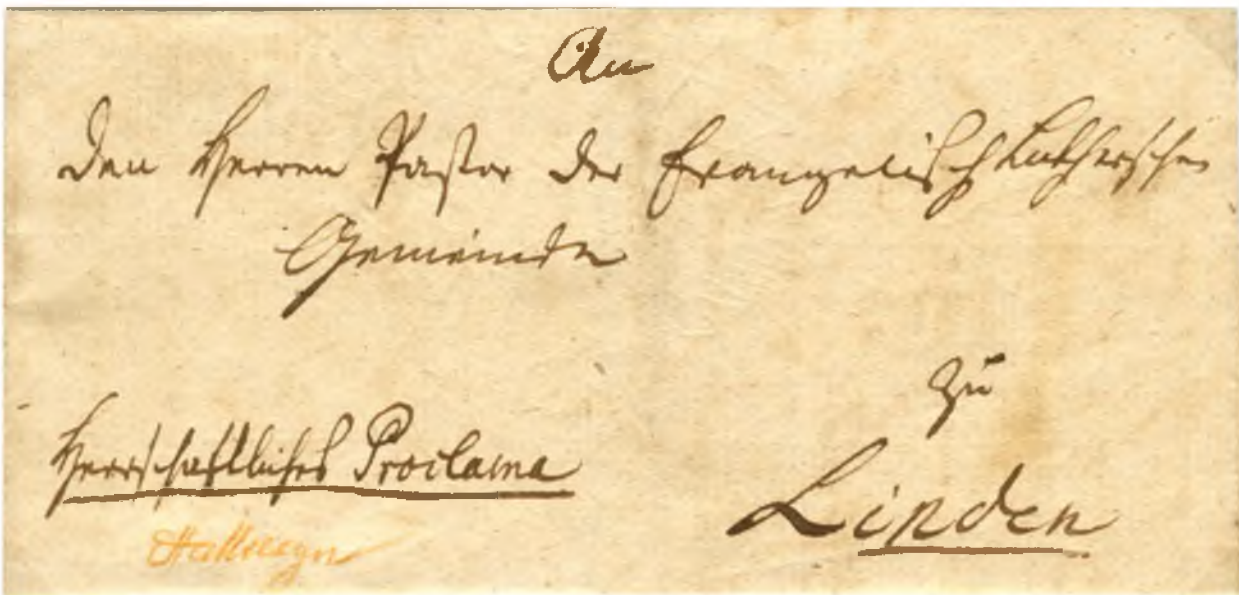 An
den Herren Pastor der Evangelisch Lutherschen
Gemeinde
zu
Herrschaftliches Proclama
Linden
Hattingen